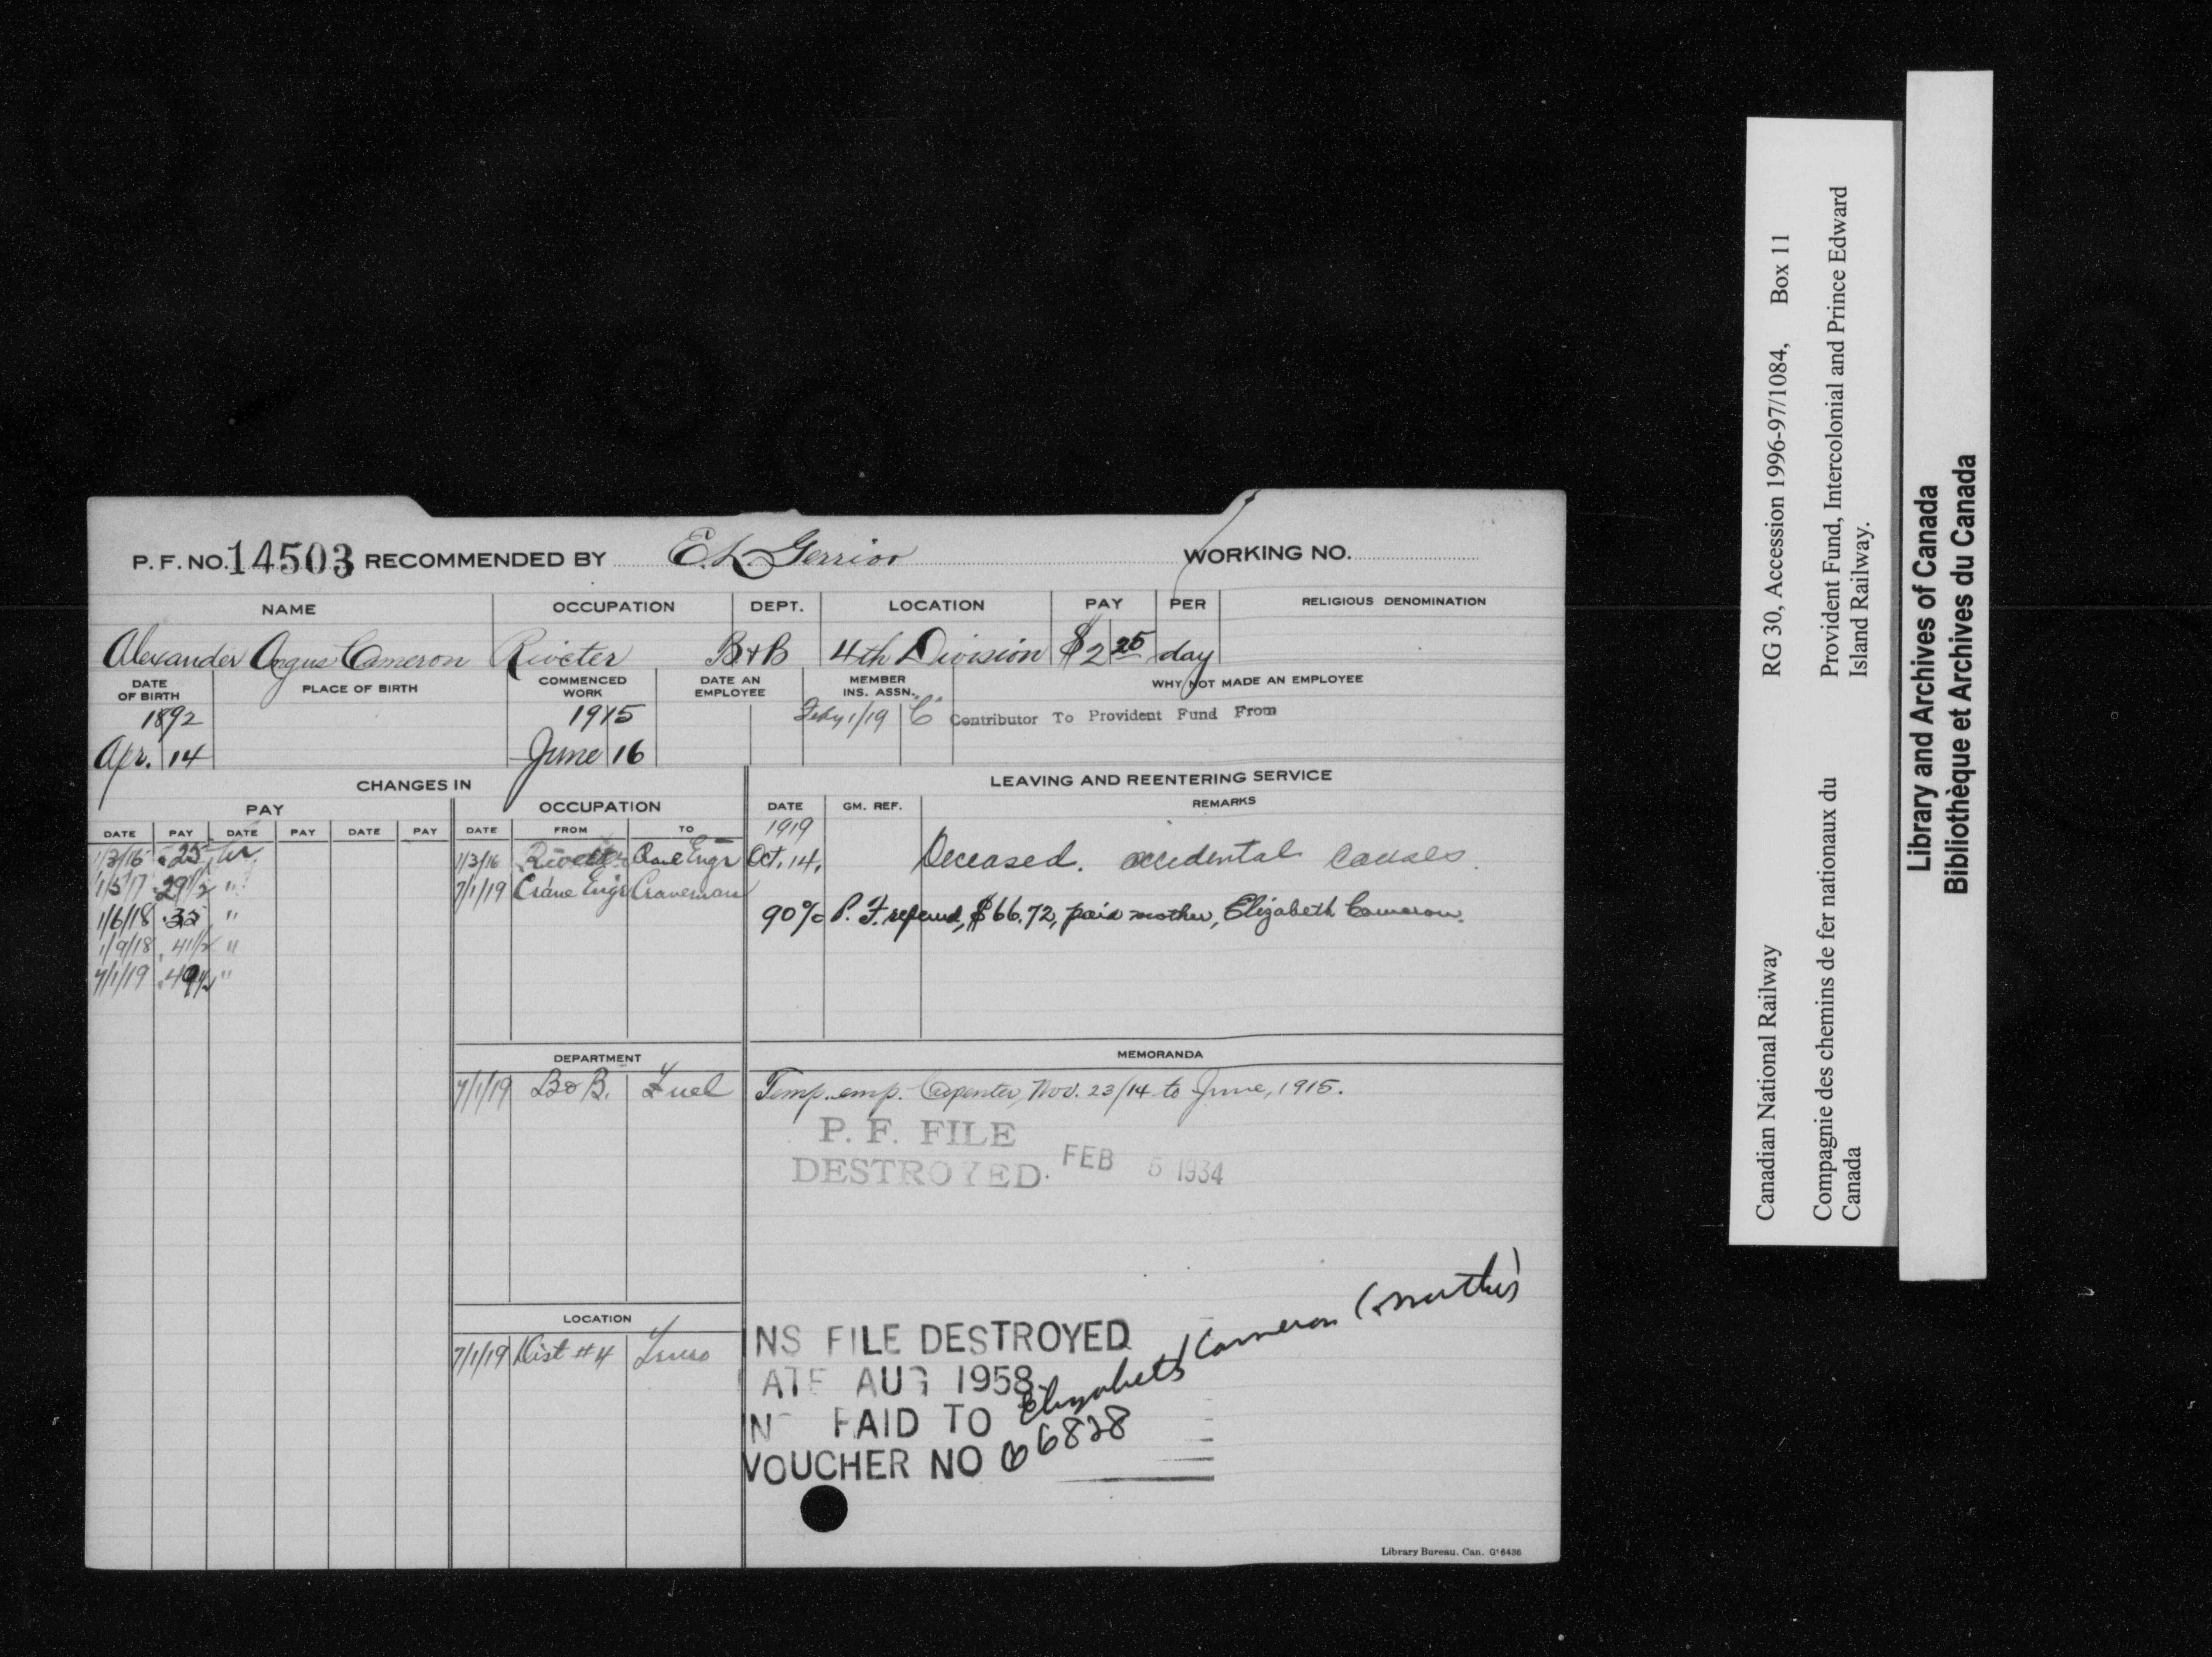 P. F. NO. 14503 RECOMMENDED BY E. L. Gerrior WORKING NO.
NAME OCCUPATION DEPT. LOCATION PAY PER RELIGIOUS DENOMINATION
Alexander Angus Cameron Riveter B+B 4th Division $2 25 day
DATE OF BIRTH PLACE OF BIRTH COMMENCED WORK DATE AN EMPLOYEE MEMBER INS. ASSN. WHY NOT MADE AN EMPLOYEE
1892 1915 Feby 1/19 "C" Contributor To Provident Fund From
Apr. 14 June 16
CHANGES IN LEAVING AND REENTERING SERVICE
PAY OCCUPATION DATE GM. REF. REMARKS
DATE PAY DATE PAY DATE PAY DATE FROM TO 1919
1/3/16 .25 hr 1/3/16 Riveter Crane Engr Oct. 14. Deceased. accidental causes.
1/5/17 .29 1/2 " 7/1/19 Crane Engr Craneman
1/6/18 .35 " 90% P. F. refund, $66.72, paid mother, Elizabeth Cameron.
1/9/18 .41 1/2 "
7/1/19 .49 1/2 "
DEPARTMENT MEMORANDA
7/1/19 B&B. Fuel Temp. emp. Carpenter, Nov. 23/14 to June, 1915.
P. F. FILE
DESTROYED. FEB 5 1934
LOCATION
7/1/19 Dist #4 Truro
INS FILE DESTROYED
ATE AUG 1958
IN PAID TO Elizabeth Cameron (mother)
VOUCHER NO 66828
Library Bureau. Can. G16436
Canadian National Railway RG 30, Accession 1996-97/1084, Box 11
Compagnie des chemins de fer nationaux du Canada
Provident Fund, Intercolonial and Prince Edward Island Railway.
Library and Archives of Canada
Bibliothèque et Archives du Canada